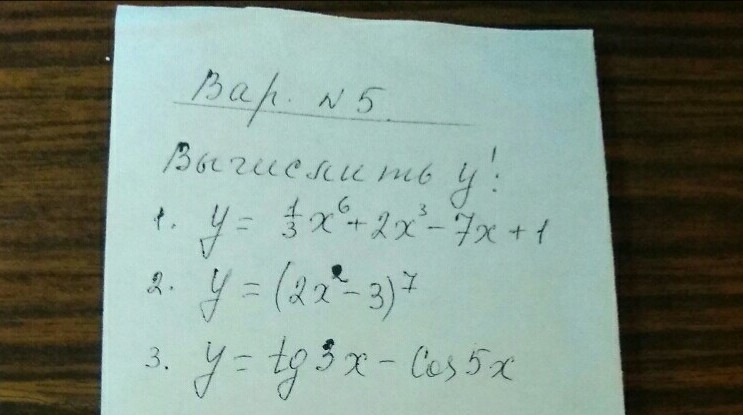 Вар. N 5.
Вычислить y':
1. y = 1/3 x⁶ + 2x³ - 7x + 1
2. y = (2x² - 3)⁷
3. y = tg 3x - cos 5x